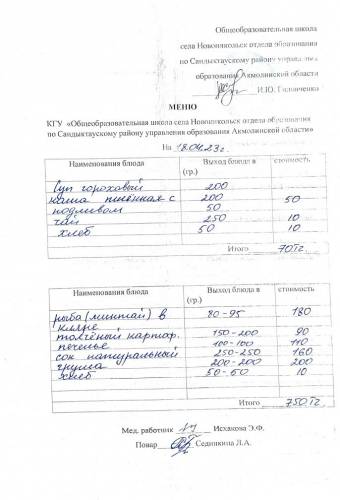 Общеобразовательная школа
села Новоникольск отдела образования
по Сандыктаускому району управления
образования Акмолинской области
И.Ю. Головченко
МЕНЮ
КГУ «Общеобразовательная школа села Новоникольск отдела образования
по Сандыктаускому району управления образования Акмолинской области»
На 18.04.23г.
Наименования блюда Выход блюда в (гр.) стоимость
Суп гороховый 200
каша пшённая с 200 50
подливом 50
чай 250 10
хлеб 50 10
Итого 70тг
Наименования блюда Выход блюда в (гр.) стоимость
рыба (минтай) в 80-95 180
кляре
толчёный картоф. 150-200 90
печенье 100-100 110
сок натуральный 250-250 160
груша 200-200 200
хлеб 50-50 10
Итого 750тг
Мед. работник Исхакова Э.Ф.
Повар Сединкина Л.А.